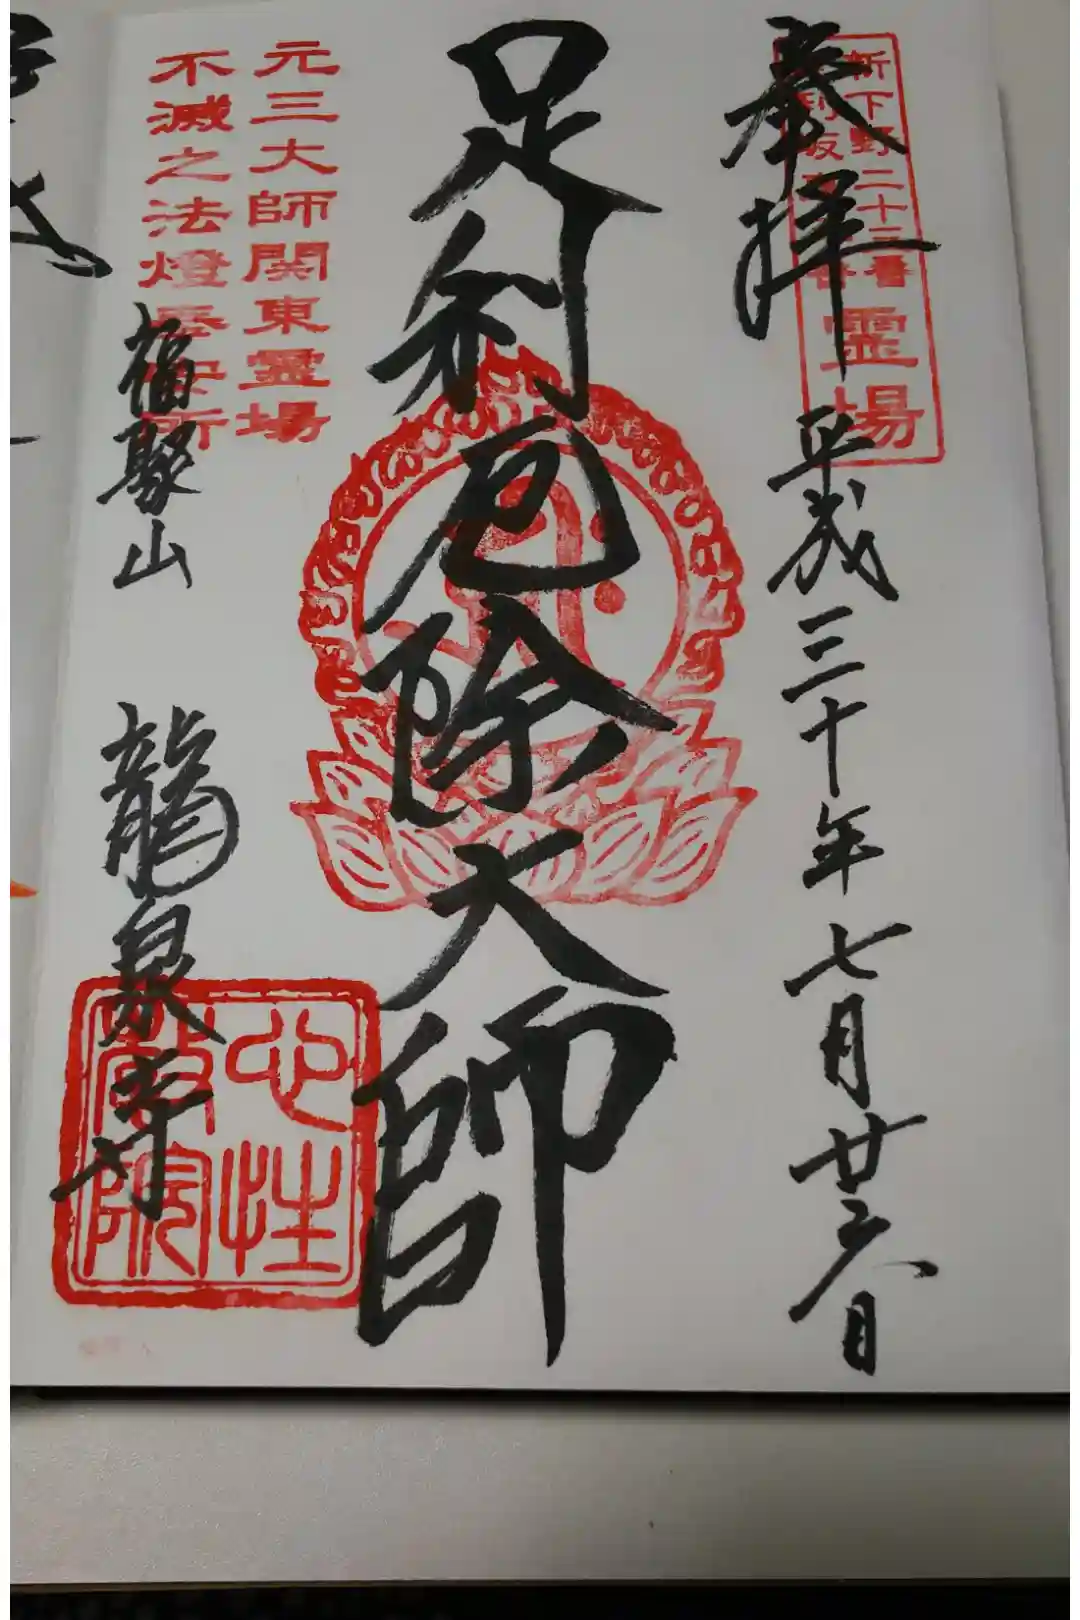 奉拝
新下野二十三番
霊場
平成三十年七月廿六日
足利厄除大師
元三大師関東霊場
不滅之法燈奉安所
福聚山
龍泉寺
心性
院